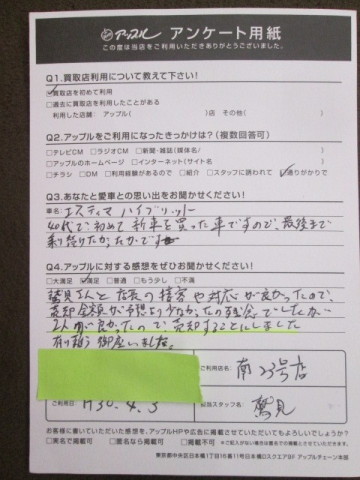 アップル アンケート用紙
この度は当店をご利用いただきありがとうございました。
Q1.買取店利用について教えて下さい!
☑買取店を初めて利用
□過去に買取店を利用したことがある
利用した店舗: アップル( )店 その他( )
Q2.アップルをご利用になったきっかけは?(複数回答可)
□テレビCM □ラジオCM □新聞・雑誌(媒体名/ )
□アップルのホームページ □インターネット(サイト名 )
□チラシ □DM □利用経験があるので □紹介 □スタッフに誘われて ☑通りがかりで
Q3.あなたと愛車との思い出をお聞かせください!
車名: エスティマ ハイブリット
40代で初めて新車を買った車ですので、最後まで
乗り続けたかったです
Q4.アップルに対する感想をぜひお聞かせください!
□大満足 ☑満足 □普通 □もう少し □不満
鷲見さんと店長の接客や対応が良かったので、
売却金額が予想より少なかったのは残念でしたが
2人が良かったので、売却することにしました
有り難う御座いました。
ご利用店名: 南23号店
ご利用日 H30.4.3
担当スタッフ名 鷲見
お客様に書いていただいた感想を、アップルHPや広告に掲載させていただいてもよろしいでしょうか?
□実名で掲載可 □匿名なら掲載可 □掲載不可 ※ご記入がない場合は匿名での掲載とさせていただきます。
東京都中央区日本橋1丁目16番11号日本橋DスクエアBF アップルチェーン本部